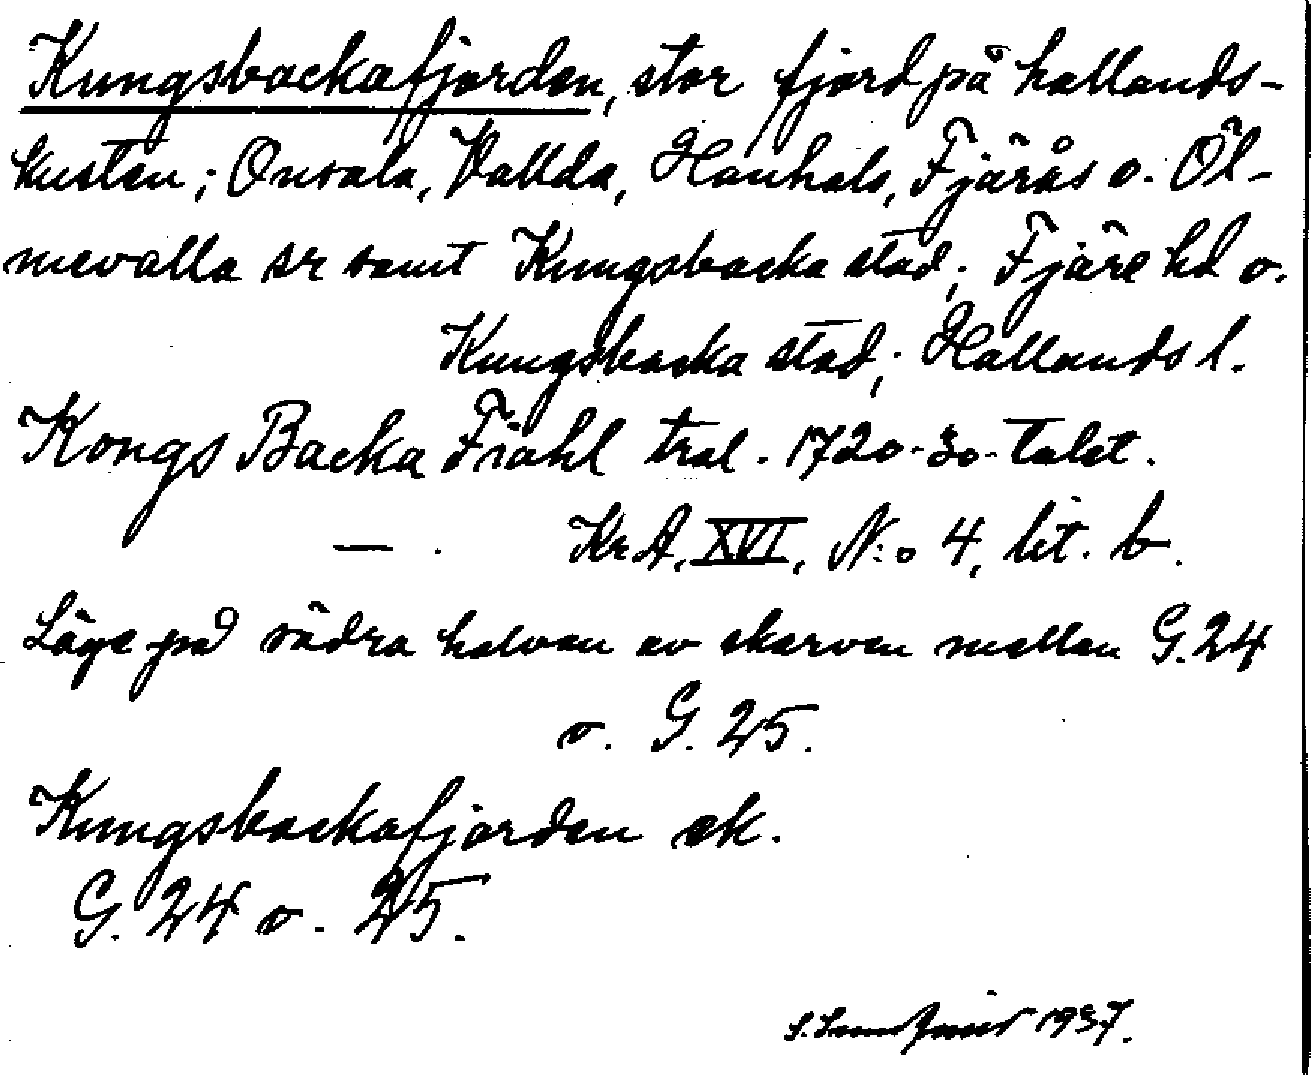 Kungsbackafjorden, stor fjord på hallands-
kusten; Onsala, Vallda, Hanhals, Fjärås o. Öl-
mevalla sr samt Kungsbacka stad; Fjäre hd o.
Kungsbacka stad; Hallands l.
Kongs Backa Fiähl tral. 1720-30-talet.
— . KrA, XVI, N:o 4, lit. b.
Läge på södra halvan av skarven mellan G.24
o. G. 25.
Kungsbackafjorden ek.
G. 24 o. 25.
1937.